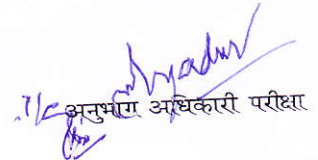 अनुभाग अधिकारी परीक्षा